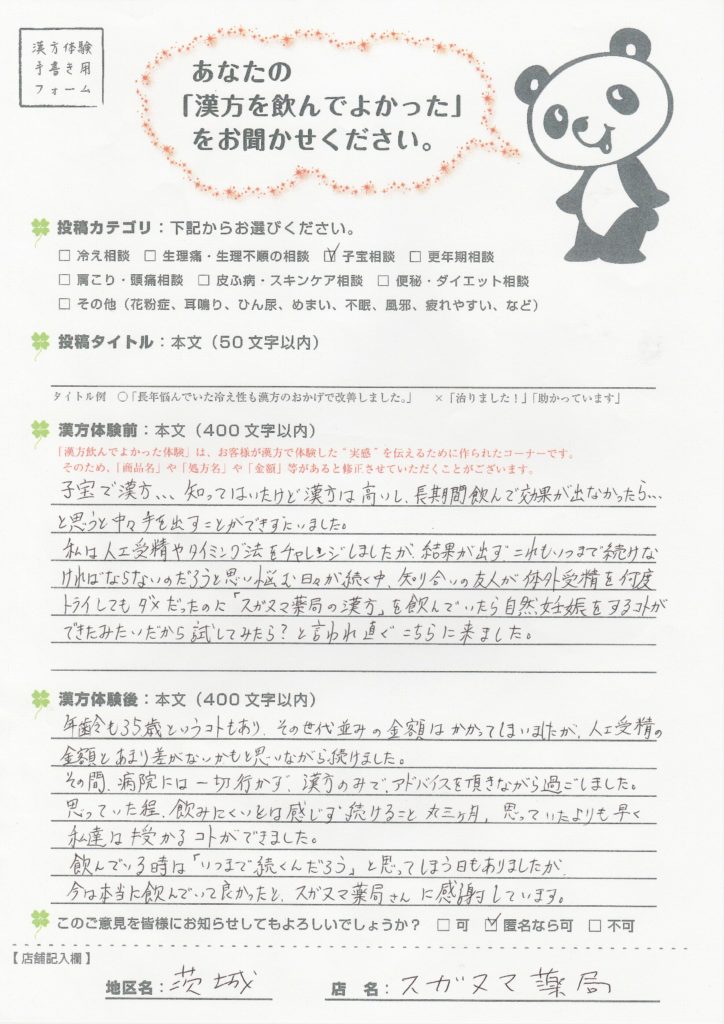 漢方体験
手書き用
フォーム
あなたの
「漢方を飲んでよかった」
をお聞かせください。
投稿カテゴリ：下記からお選びください。
□ 冷え相談 □ 生理痛・生理不順の相談 ☑ 子宝相談 □ 更年期相談
□ 肩こり・頭痛相談 □ 皮ふ病・スキンケア相談 □ 便秘・ダイエット相談
□ その他（花粉症、耳鳴り、ひん尿、めまい、不眠、風邪、疲れやすい、など）
投稿タイトル：本文（50文字以内）
タイトル例 ○「長年悩んでいた冷え性も漢方のおかげで改善しました。」 ×「治りました！」「助かっています」
漢方体験前：本文（400文字以内）
「漢方飲んでよかった体験」は、お客様が漢方で体験した“実感”を伝えるために作られたコーナーです。
そのため、「商品名」や「処方名」や「金額」等があると修正させていただくことがございます。
子宝で漢方... 知ってはいたけど漢方は高いし、長期間飲んで効果が出なかったら...
と思うと中々手を出すことができずにいました。
私は人工受精やタイミング法をチャレンジしましたが、結果が出ず これもいつまで続けな
ければならないのだろうと思い悩む日々が続く中、知り合いの友人が体外受精を何度
トライしてもダメだったのに「スガヌマ薬局の漢方」を飲んでいたら自然妊娠をするコトが
できたみたいだから試してみたら？と言われ直ぐこちらに来ました。
漢方体験後：本文（400文字以内）
年齢も35歳というコトもあり、その世代並みの金額はかかってしまいましたが、人工受精の
金額とあまり差がないかもと思いながら続けました。
その間、病院には一切行かず、漢方のみで、アドバイスを頂きながら過ごしました。
思っていた程、飲みにくいとは感じず続けること丸三ヶ月、思っていたよりも早く
私達は授かるコトができました。
飲んでいる時は「いつまで続くんだろう」と思ってしまう日もありましたが、
今は本当に飲んでいて良かったと、スガヌマ薬局さんに感謝しています。
このご意見を皆様にお知らせしてもよろしいでしょうか？ □ 可 ☑ 匿名なら可 □ 不可
【店舗記入欄】
地区名：茨城 店 名：スガヌマ薬局